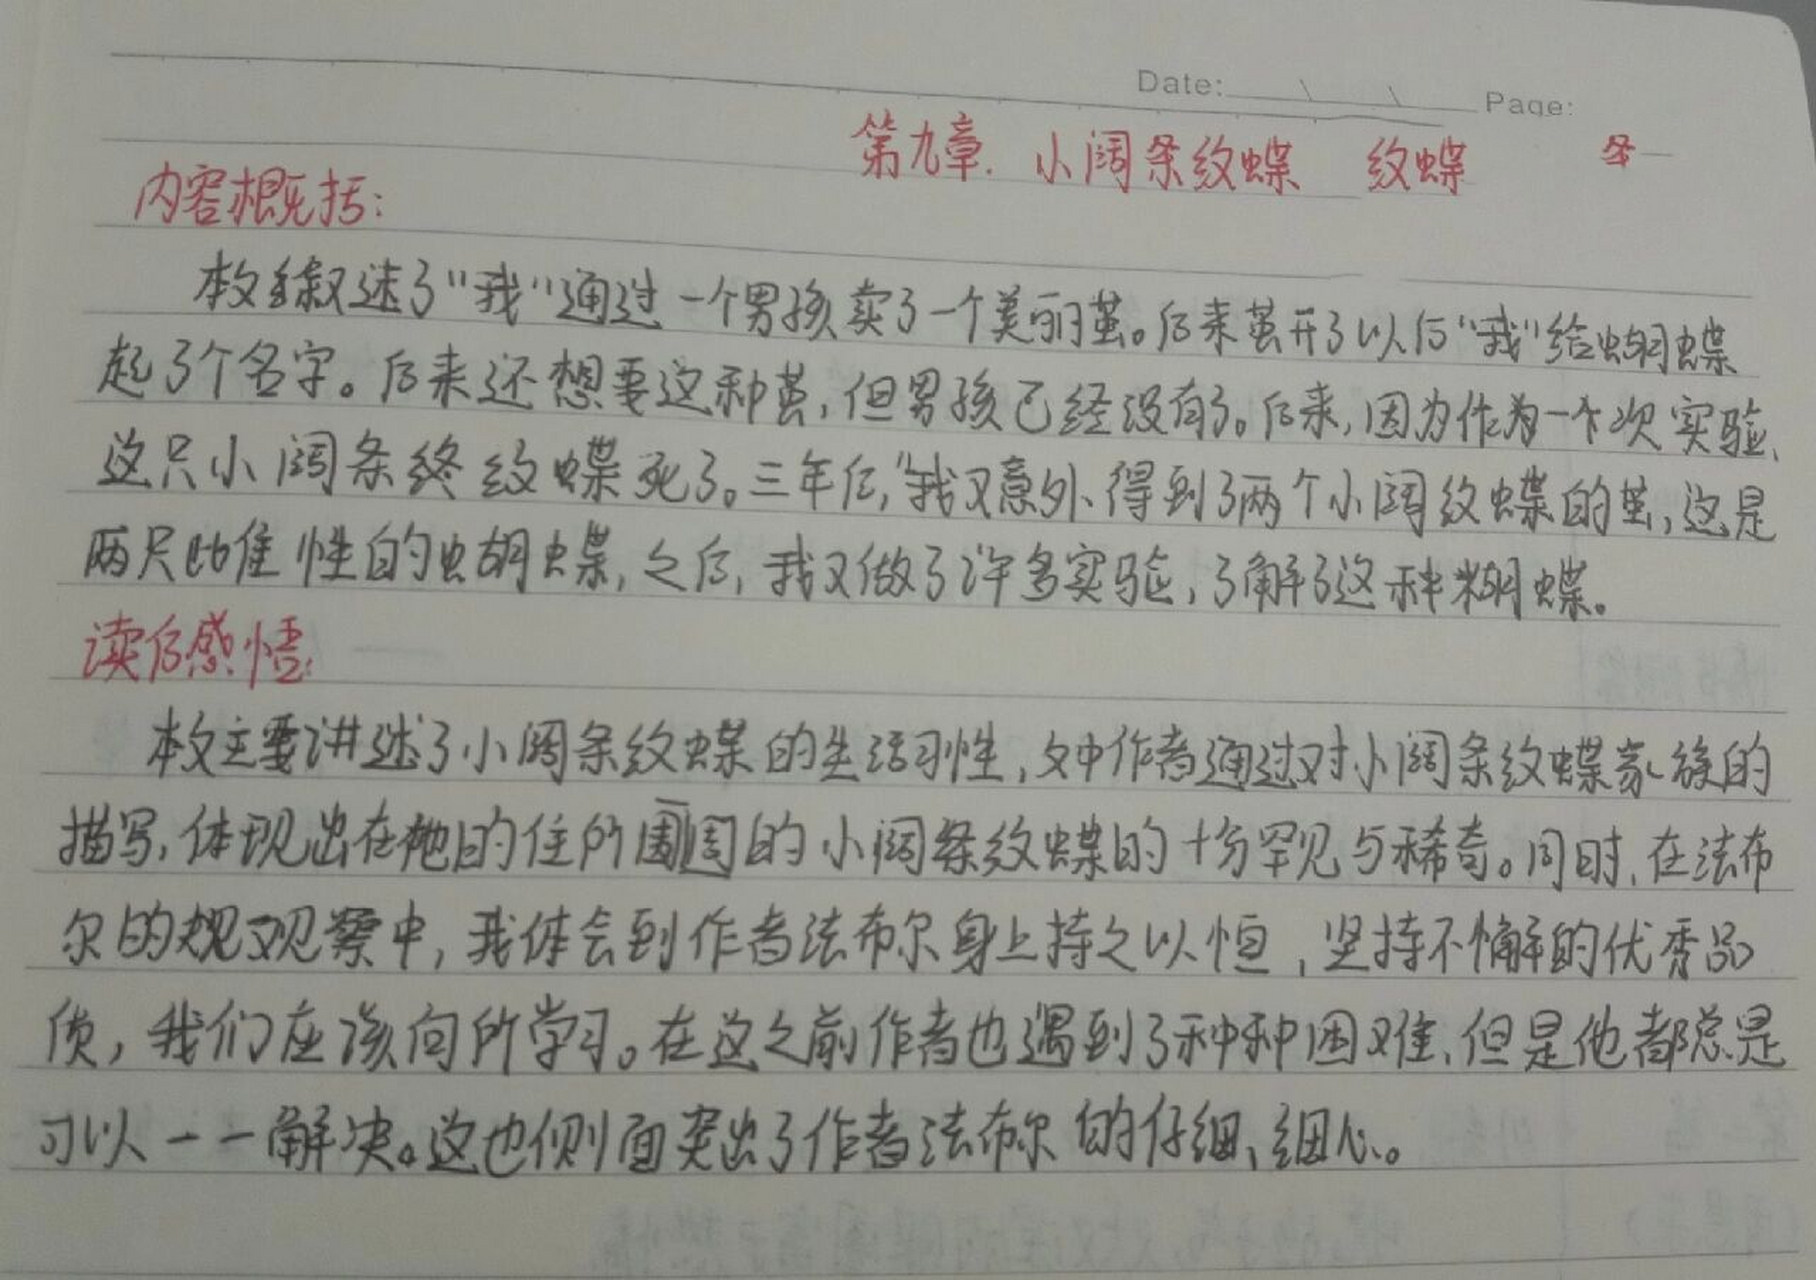 Date: \ \ Page:
第九章. 小阔条纹蝶 纹蝶
内容概括:
本文叙述了"我"通过一个男孩卖了一个美丽茧。后来茧开了以后"我"给蝴蝶
起了个名字。后来还想要这种茧,但男孩已经没有了。后来,因为作为一个次实验,
这只小阔条终纹蝶死了。三年后,"我又意外得到了两个小阔纹蝶的茧,这是
两只雌性的蝴蝶,之后,我又做了许多实验,了解了这种蝴蝶。
读后感悟:
本文主要讲述了小阔条纹蝶的生活习性,文中作者通过对小阔条纹蝶家族的
描写,体现出在他的住所周围的小阔条纹蝶的十分罕见与稀奇。同时,在法布
尔的观察中,我体会到作者法布尔身上持之以恒,坚持不懈的优秀品
质,我们应该向所学习。在这之前作者也遇到了种种困难,但是他都总是
可以一一解决。这也侧面突出了作者法布尔的仔细、细心。